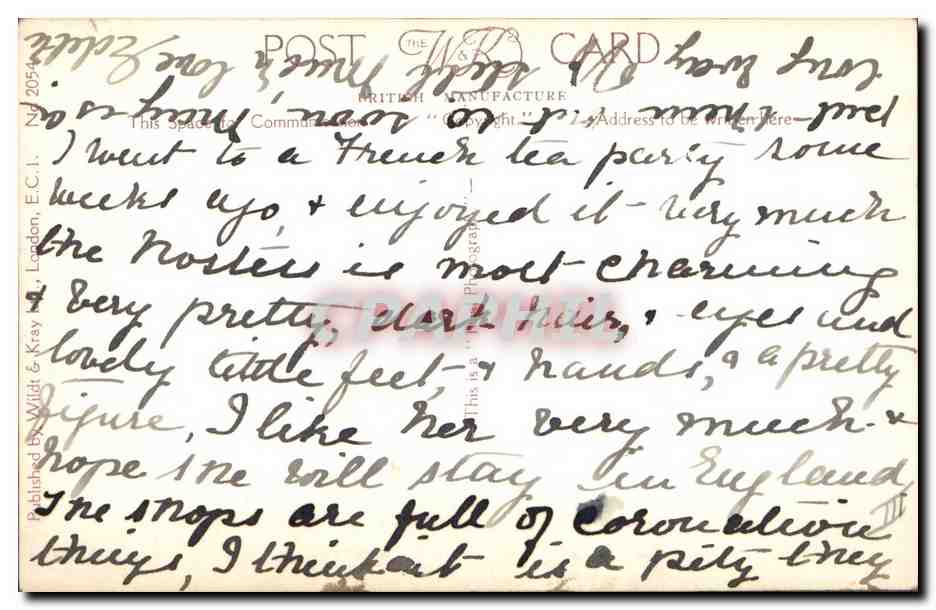 POST THE W & K CARD
BRITISH MANUFACTURE
This Space for Communication "Copyright" Address to be Written here
I went to a French tea party some
weeks ago, & enjoyed it very much
the hostess is most charming
& very pretty, dark hair, & eyes and
lovely little feet, & hands, & a pretty
figure, I like her very much &
hope she will stay in England
The shops are full of Coronation
things, I think it is a pity they
put them so soon, May is a
long way off still, Much love Edith
III
Published by Wildt & Kray Ld., London, E.C.1. No 2054
This is a Photograph
CPAPHIL